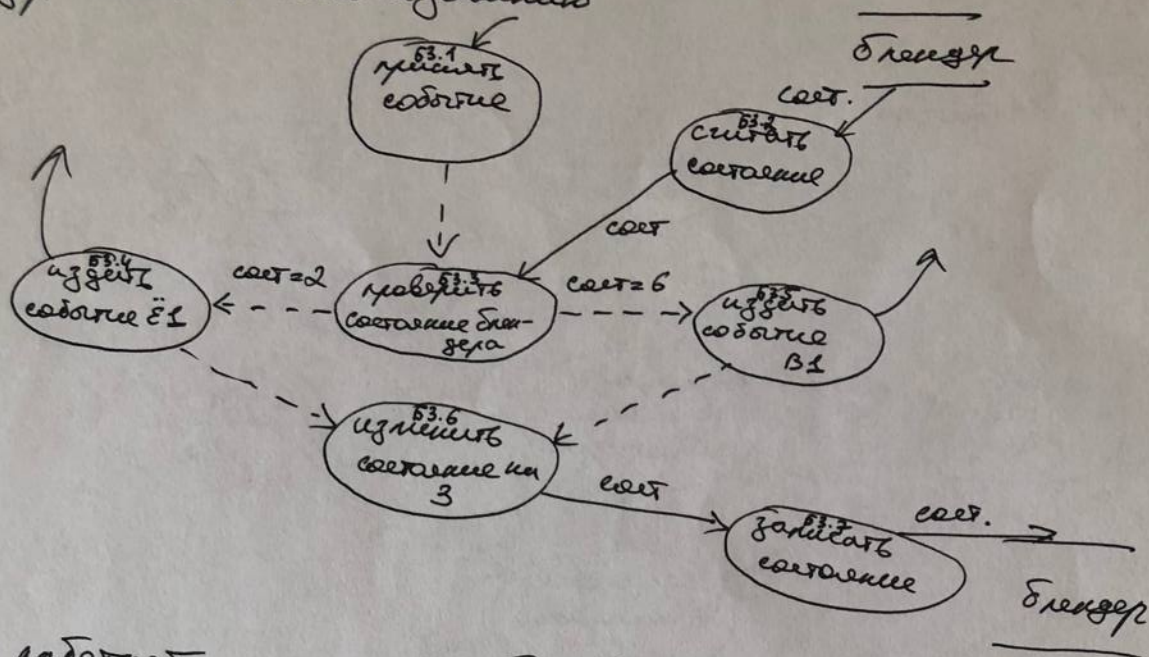 Б3.1
принять
событие
блендер
сост.
Б3.2
считать
состояние
сост
Б3.4
издать
событие Ё1
сост=2
Б3.3
проверить
состояние блен-
дера
сост=6
Б3.5
издать
событие
В1
Б3.6
изменить
состояние на
3
сост
Б3.7
записать
состояние
сост.
блендер
работает